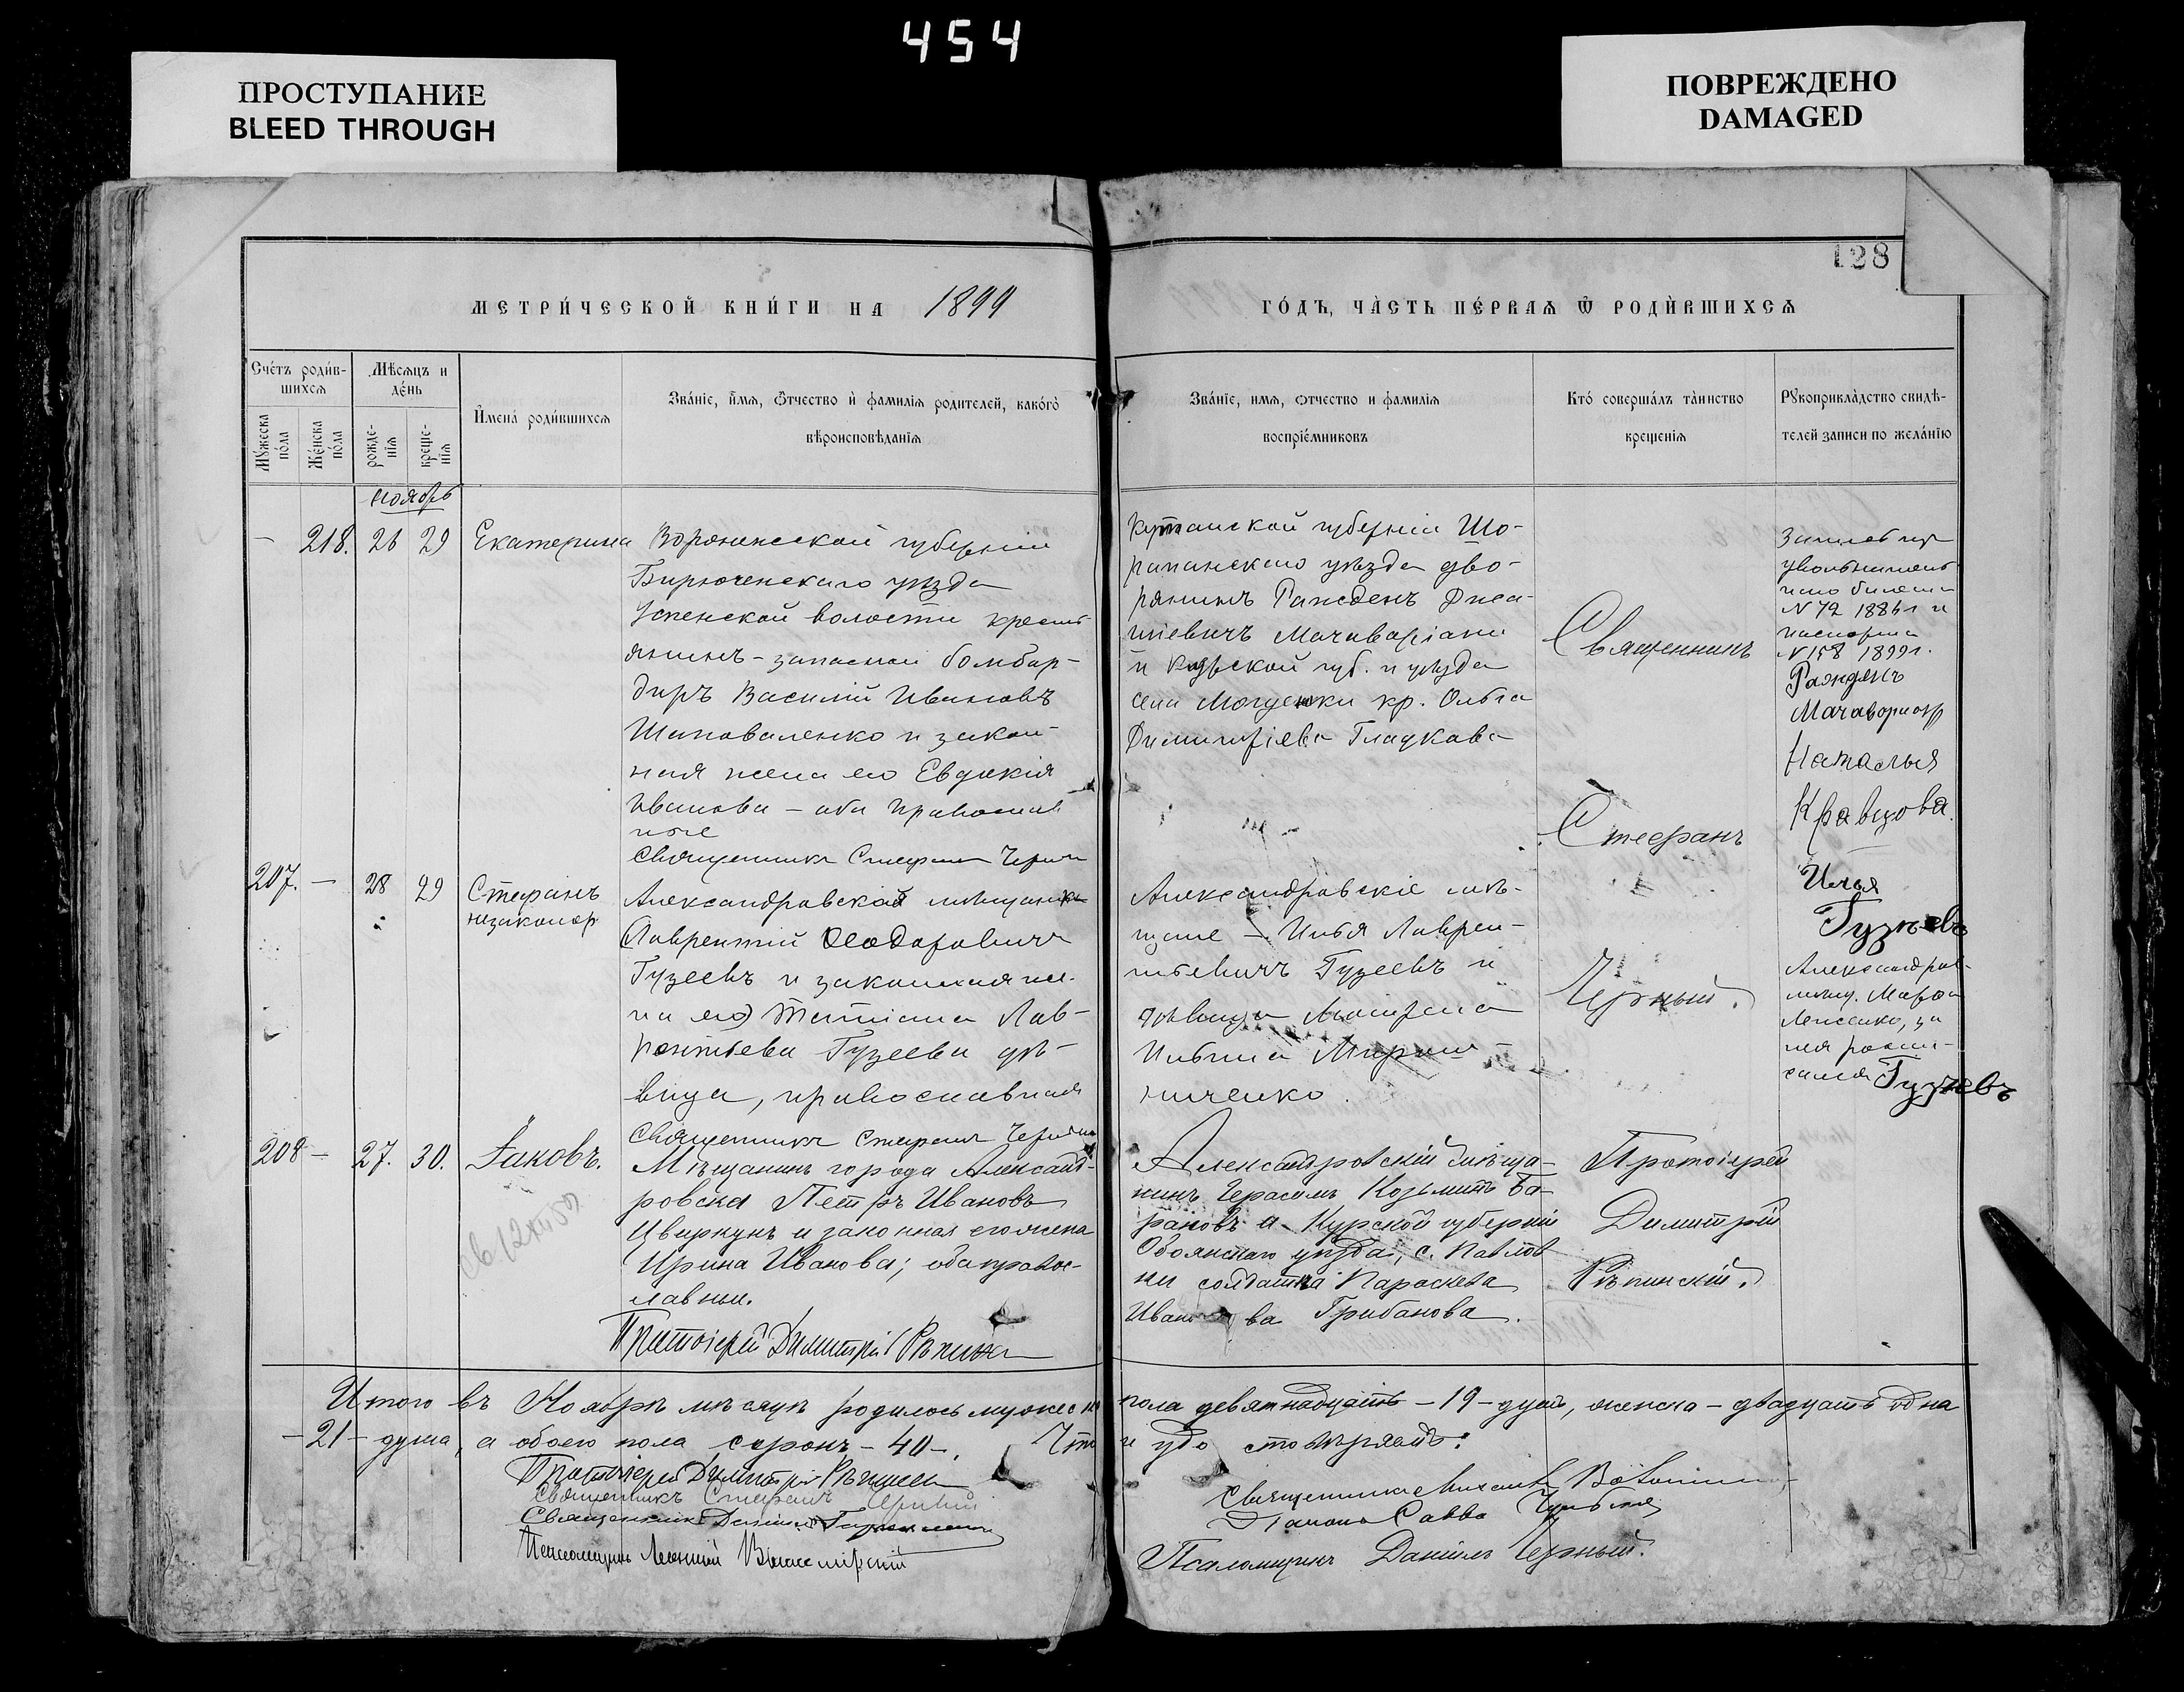 454
ПРОСТУПАНИЕ
BLEED THROUGH
ПОВРЕЖДЕНО
DAMAGED
128
МЕТРИ́ЧЕСКОЙ КНИ́ГИ НА 1899
ГО́ДЪ, ЧА̀СТЬ ПЕ́РВАЯ Ѿ РОДЍВШИХСЯ
Счётъ роди́в-
шихся
Му́жеска по́ла
Же́нска по́ла
Мѣ́сяцъ и
де́нь
рожде-
нія
креще-
нія
И҆мена̀ роди́вшихся
Зва́ніе, и҆́мя, ѻ҆́тчество и҆ фамилія родителей, како́го
вѣроисповѣданія
Зва́ніе, имя, ѻтчество и фамилія
воспріе́мниковъ
Кто́ совершáлъ та̀инство
крещенія
Рꙋкоприкла̀дство свидѣ-
телей записи по жела́нію
ноябрь
— 218. 26 29 Екатерина
Воронежской губерніи
Бирюченскаго уѣзда
Успенской волости кресть
янинъ - запасной бомбар-
диръ Василій Ивановъ
Шаповаленко и закон-
ная жена его Евдокія
Иванова — оба православ
ные
Священникъ Стефанъ Черный
Кутаиской губерніи Шо-
рапанскаго уѣзда дво-
рянинъ Ражденъ
Мачаваріани
и Курской губ. и уѣзда
села кр. Ольга
Димитріева Гладкова
Священникъ
Стефанъ
Черный.
N 72 1886 г и
паспорта
N 158 1899 г.
Ражденъ
Наталья
Кравцова.
207. — 28 29 Стефанъ
незаконор
Александровской мѣщанинъ
Лаврентій Ѳеодоровичъ
Гузеевъ и законная же-
на его Татіана Лав-
рентьева Гузеева дѣ-
вица, православная
Священникъ Стефанъ Черный
Александровскіе мѣ-
щане — Илья Лаврен-
тьевичъ Гузеевъ и
дѣвица
Ильина Мирош-
ниченко.
Илья
Гузѣевъ
Александров
мѣщ. Марѳа
Лысенко, за
нея роспи-
сался Гузѣевъ
208 — 27. 30. Іаковъ.
Мѣщанинъ города Александ-
ровска Петръ Ивановъ
Цвиркунъ и законная его жена
Ирина Иванова; оба правос-
лавные.
Протоіерей Димитрій Рѣпинскій
Александровскій мѣща-
нинъ Герасимъ Козьминъ Ба-
рановъ и Курской губерніи
Обоянскаго уѣзда, с. Павлов
ки солдатка Параскева
Иванова Грибанова.
Протоіерей
Димитрій
Рѣпинскій.
Итого въ Ноябрѣ мѣсяцѣ родилось мужеска пола девятнадцать — 19 — душъ, женска — двадцать одна
— 21 — душа, а обоего пола сорокъ — 40 —.
Протоіерей Димитрій Рѣпинскій
Священникъ Стефанъ Черный
Священникъ
Священникъ Михаилъ
Псаломщикъ Даніилъ Черный.